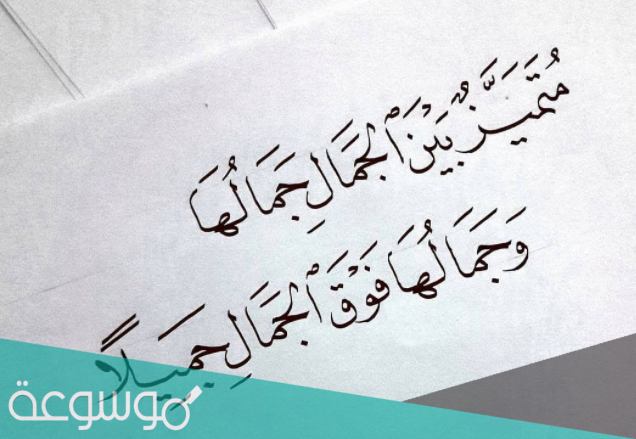 مُتَمَيَّزٌ بَيْنَ ٱلجَمَالِ جَمَالُهَا
وَجَمَالُهَا فَوْقَ ٱلجَمَالِ جَمِيلًا
موسوعة